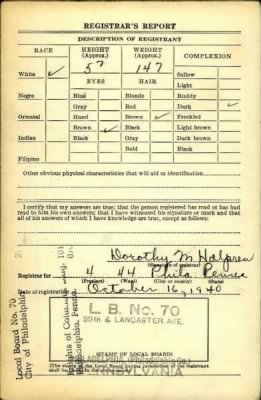 REGISTRAR'S REPORT
DESCRIPTION OF REGISTRANT
RACE
HEIGHT
(Approx.)
WEIGHT
(Approx.)
COMPLEXION
White ✓
5 7
147
Sallow
EYES
HAIR
Light
Negro
Blue
Blonde
Ruddy
Gray
Red
Dark ✓
Oriental
Hazel
Brown ✓
Freckled
Brown ✓
Black
Light brown
Indian
Black
Gray
Dark brown
Bald
Black
Filipino
Other obvious physical characteristics that will aid in identification
I certify that my answers are true; that the person registered has read or has had
read to him his own answers; that I have witnessed his signature or mark and that
all of his answers of which I have knowledge are true, except as follows:
Dorothy M. Halpren
(Signature of registrar)
Registrar for 4 44 Phila Penna
(Precinct) (Ward) (City or county) (State)
Date of registration October 16, 1940
Local Board No. 70
City of Philadelphia
Philadelphia, Penna.
L. B. No. 70
55th & LANCASTER AVE.
(STAMP OF LOCAL BOARD)